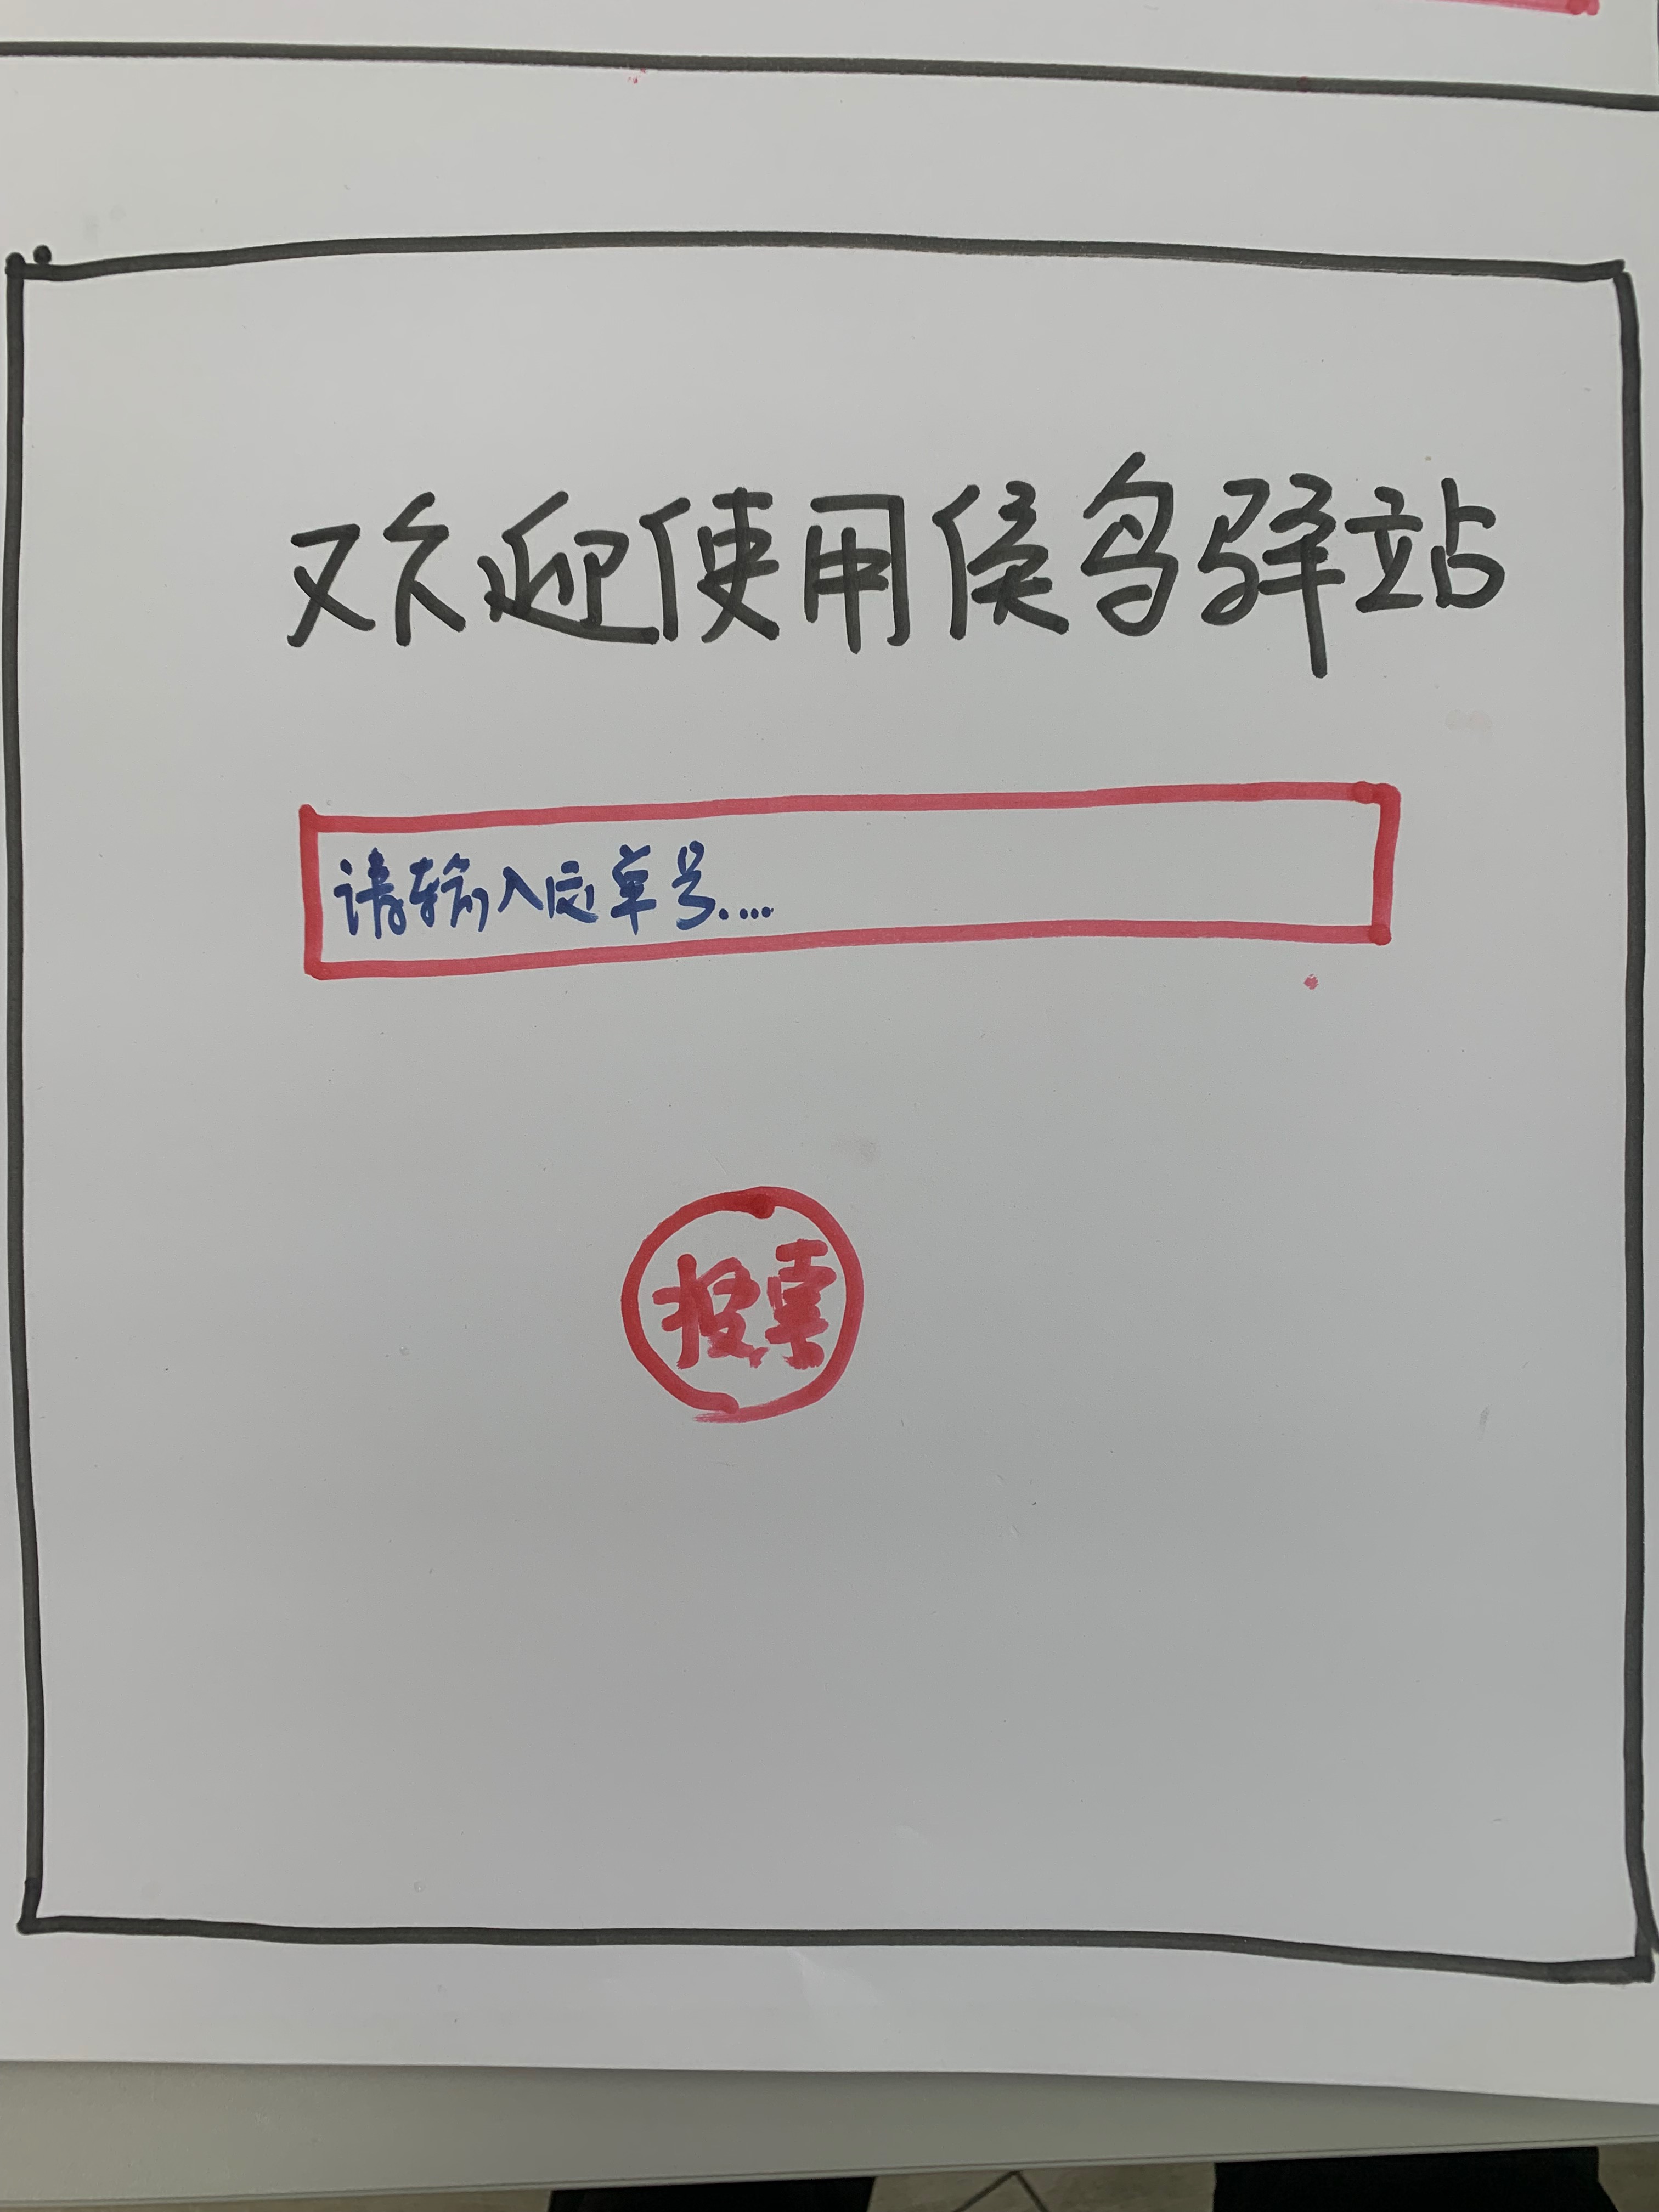 欢迎使用候鸟驿站
请输入定单号....
搜索